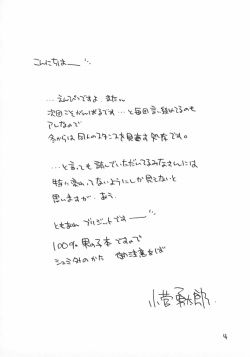 こんにちはー
…えんぴつですよ、また。
次回こそがんばるです…と毎回言い続けてるのも
アレなので
今からは同人のスタンスを見直す処存です。
…と言っても読んでいただいてるみなさんには
特に変わってないようにしか見えないと
思いますが、あう。
ともあれ ブリジットですー
100%男の子本ですので
シュミ外のかた 御注意をば
小菅勇太郎
4